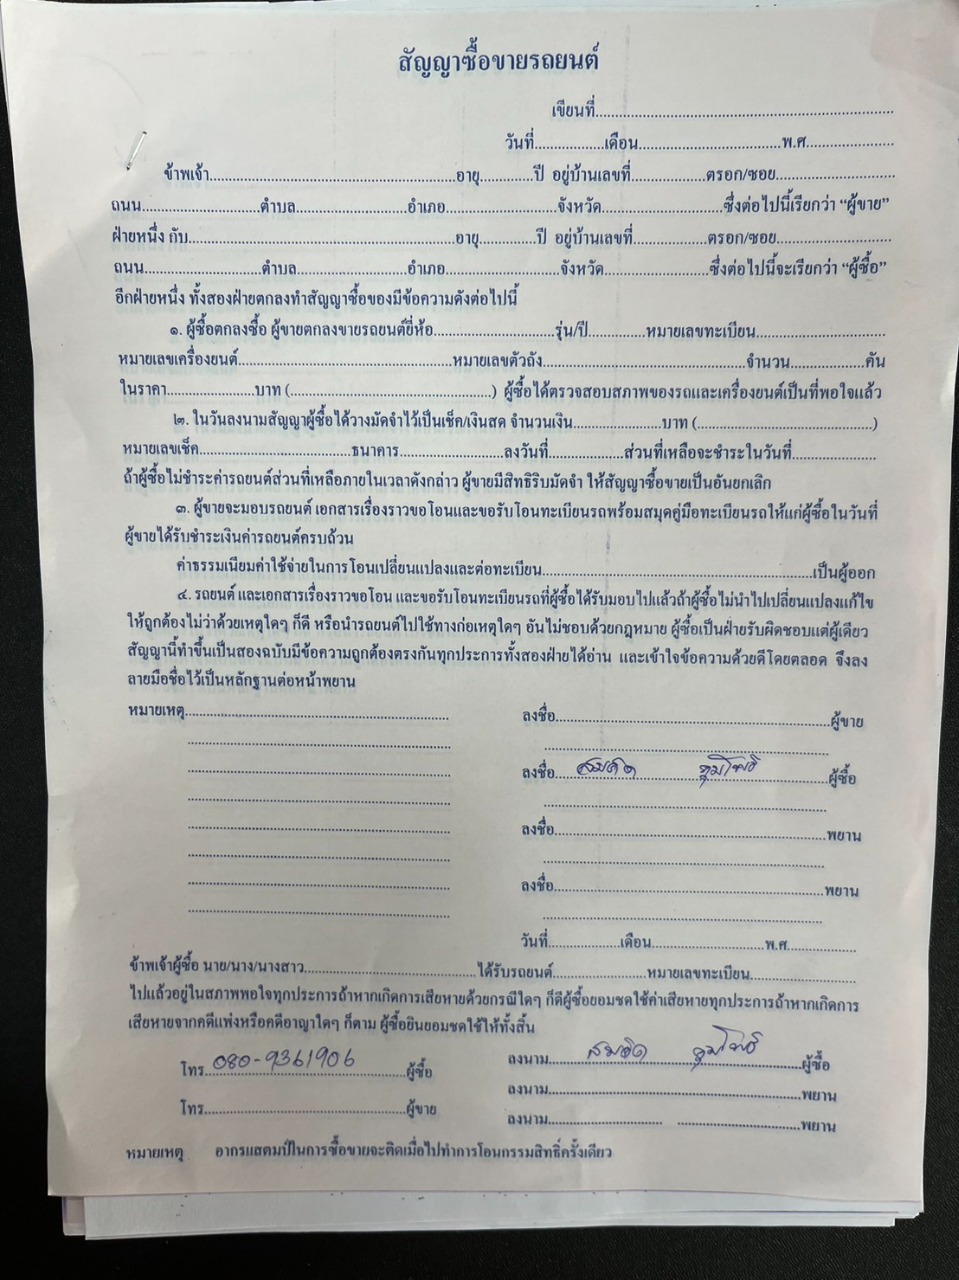 สัญญาซื้อขายรถยนต์
เขียนที่................................
วันที่................เดือน................................พ.ศ....................
ข้าพเจ้า................................อายุ.............ปี อยู่บ้านเลขที่.................ตรอก/ซอย............................
ถนน............................ตำบล..........................อำเภอ..........................จังหวัด............................ซึ่งต่อไปนี้เรียกว่า “ผู้ขาย”
ฝ่ายหนึ่ง กับ................................อายุ.............ปี อยู่บ้านเลขที่.................ตรอก/ซอย............................
ถนน............................ตำบล..........................อำเภอ..........................จังหวัด........................ซึ่งต่อไปนี้จะเรียกว่า “ผู้ซื้อ”
อีกฝ่ายหนึ่ง ทั้งสองฝ่ายตกลงทำสัญญาซื้อของมีข้อความดังต่อไปนี้
๑. ผู้ซื้อตกลงซื้อ ผู้ขายตกลงขายรถยนต์ยี่ห้อ............................รุ่น/ปี.............หมายเลขทะเบียน..............................
หมายเลขเครื่องยนต์................................หมายเลขตัวถัง................................จำนวน.................คัน
ในราคา....................บาท (................................) ผู้ซื้อได้ตรวจสอบสภาพของรถและเครื่องยนต์เป็นที่พอใจแล้ว
๒. ในวันลงนามสัญญาผู้ซื้อได้วางมัดจำไว้เป็นเช็ค/เงินสด จำนวนเงิน....................บาท (................................)
หมายเลขเช็ค................................ธนาคาร........................ลงวันที่.................ส่วนที่เหลือจะชำระในวันที่...................
ถ้าผู้ซื้อไม่ชำระค่ารถยนต์ส่วนที่เหลือภายในเวลาดังกล่าว ผู้ขายมีสิทธิริบมัดจำ ให้สัญญาซื้อขายเป็นอันยกเลิก
๓. ผู้ขายจะมอบรถยนต์ เอกสารเรื่องราวขอโอนและขอรับโอนทะเบียนรถพร้อมสมุดคู่มือทะเบียนรถให้แก่ผู้ซื้อในวันที่
ผู้ขายได้รับชำระเงินค่ารถยนต์ครบถ้วน
ค่าธรรมเนียมค่าใช้จ่ายในการโอนเปลี่ยนแปลงและต่อทะเบียน................................เป็นผู้ออก
๔. รถยนต์ และเอกสารเรื่องราวขอโอน และขอรับโอนทะเบียนรถที่ผู้ซื้อได้รับมอบไปแล้วถ้าผู้ซื้อไม่นำไปเปลี่ยนแปลงแก้ไข
ให้ถูกต้องไม่ว่าด้วยเหตุใดๆ ก็ดี หรือนำรถยนต์ไปใช้ทางก่อเหตุใดๆ อันไม่ชอบด้วยกฎหมาย ผู้ซื้อเป็นฝ่ายรับผิดชอบแต่ผู้เดียว
สัญญานี้ทำขึ้นเป็นสองฉบับมีข้อความถูกต้องตรงกันทุกประการทั้งสองฝ่ายได้อ่าน และเข้าใจข้อความด้วยดีโดยตลอด จึงลง
ลายมือชื่อไว้เป็นหลักฐานต่อหน้าพยาน
หมายเหตุ................................
ลงชื่อ................................ผู้ขาย
ลงชื่อ................................ผู้ซื้อ
ลงชื่อ................................พยาน
ลงชื่อ................................พยาน
วันที่.................เดือน..........................พ.ศ.................
ข้าพเจ้าผู้ซื้อ นาย/นาง/นางสาว................................ได้รับรถยนต์......................หมายเลขทะเบียน.........................
ไปแล้วอยู่ในสภาพพอใจทุกประการถ้าหากเกิดการเสียหายด้วยกรณีใดๆ ก็ดีผู้ซื้อยอมชดใช้ค่าเสียหายทุกประการถ้าหากเกิดการ
เสียหายจากคดีแพ่งหรือคดีอาญาใดๆ ก็ตาม ผู้ซื้อยินยอมชดใช้ให้ทั้งสิ้น
โทร. 080-9361906 ผู้ซื้อ
ลงนาม................................ผู้ซื้อ
ลงนาม................................พยาน
โทร................................ผู้ขาย
ลงนาม................................พยาน
หมายเหตุ อากรแสตมป์ในการซื้อขายจะติดเมื่อไปทำการโอนกรรมสิทธิ์ครั้งเดียว